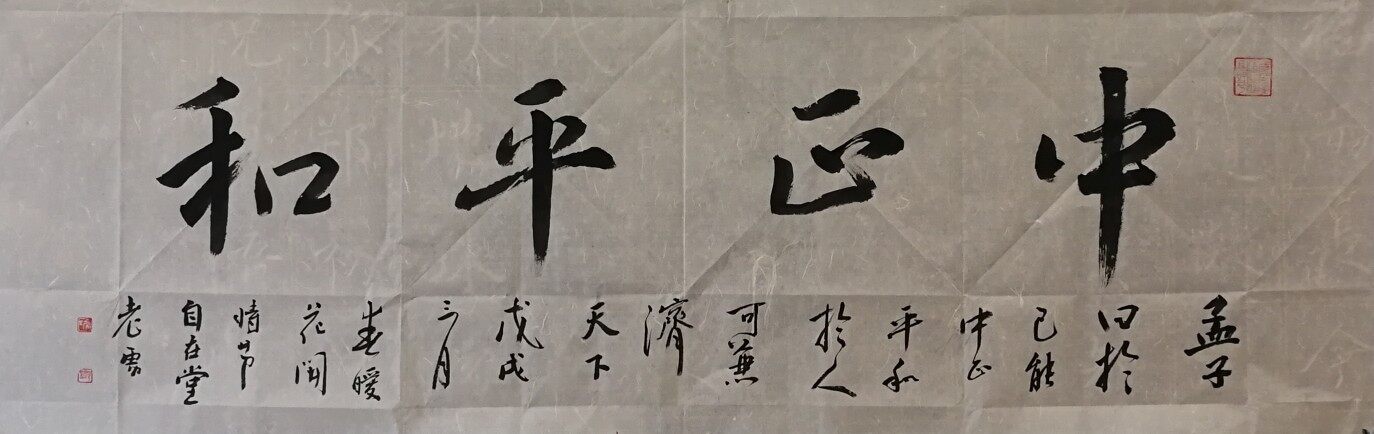 中正平和
孟子
曰於
己能
中正
平和
於人
可兼
濟
天下
戊戌
三月
春暖
花開
情节
自在堂
老雷